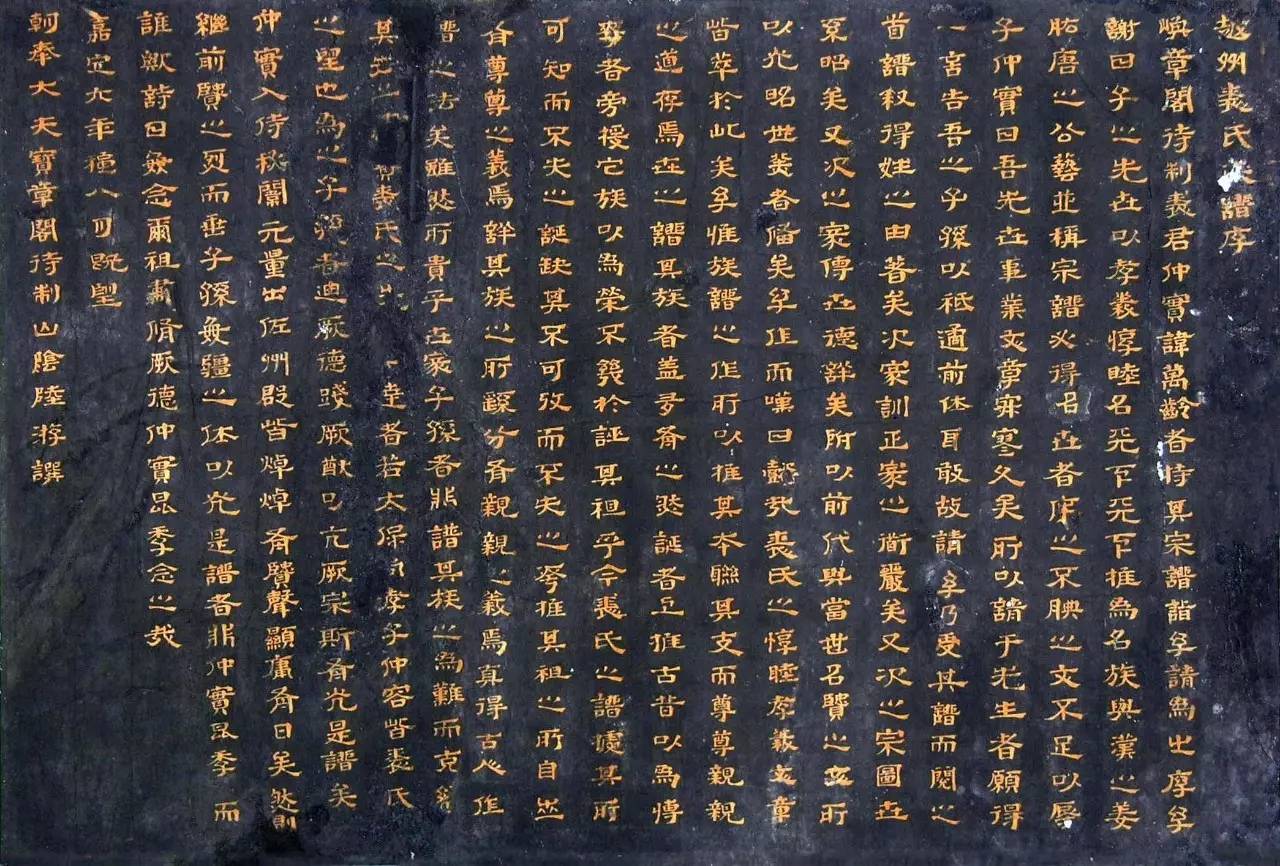 越州裘氏族譜序
煥章閣待制裘君仲實諱萬齡者持其宗譜詣予請為之序予
謝曰子之先世以孝義惇睦名天下天下推為名族與漢之姜
肱唐之公藝並稱宗譜必得名世者序之不腆之文不足以辱
子仲實曰吾先世事業文章寂寥久矣所以請于先生者願得
一言告吾之子孫以祗遹前休耳敢故請予乃受其譜而閱之
首譜敘得姓之由著矣次家訓正家之術嚴矣又次之宗圖世
系昭矣又次之家傳世德詳矣附以前代與當世名賢之文所
以光昭世美者備矣予作而嘆曰懿哉裘氏之惇睦孝義文章
皆萃於此矣予惟族譜之作所以推其本聯其支而尊尊親親
之道存焉世之譜其族者蓋多有之然誕者上推古昔以為博
夸者旁援它族以為榮不幾於誣其祖乎今裘氏之譜據其所
可知而不失之誕缺其不可攷而不失之夸推其祖之所自出
有尊尊之義焉詳其族之所繇分有親親之義焉真得古人作
譜之法矣雖然所貴乎世家子孫者非譜其族之為難而克
其 之 裘氏之 達者若太保 孝子仲容皆裘氏
之望也為之子孫者迪厥德踐厥猷以亢厥宗斯有光是譜矣
仲實入侍秘閣元量出佐州郡皆焯焯有賢聲顯庸有日矣然則
繼前賢之烈而垂子孫無疆之休以光是譜者非仲實昆季而
誰歟詩曰無念爾祖聿脩厥德仲實昆季念之哉
嘉定六年 八月既望
朝奉大夫寶章閣待制山陰陸游譔